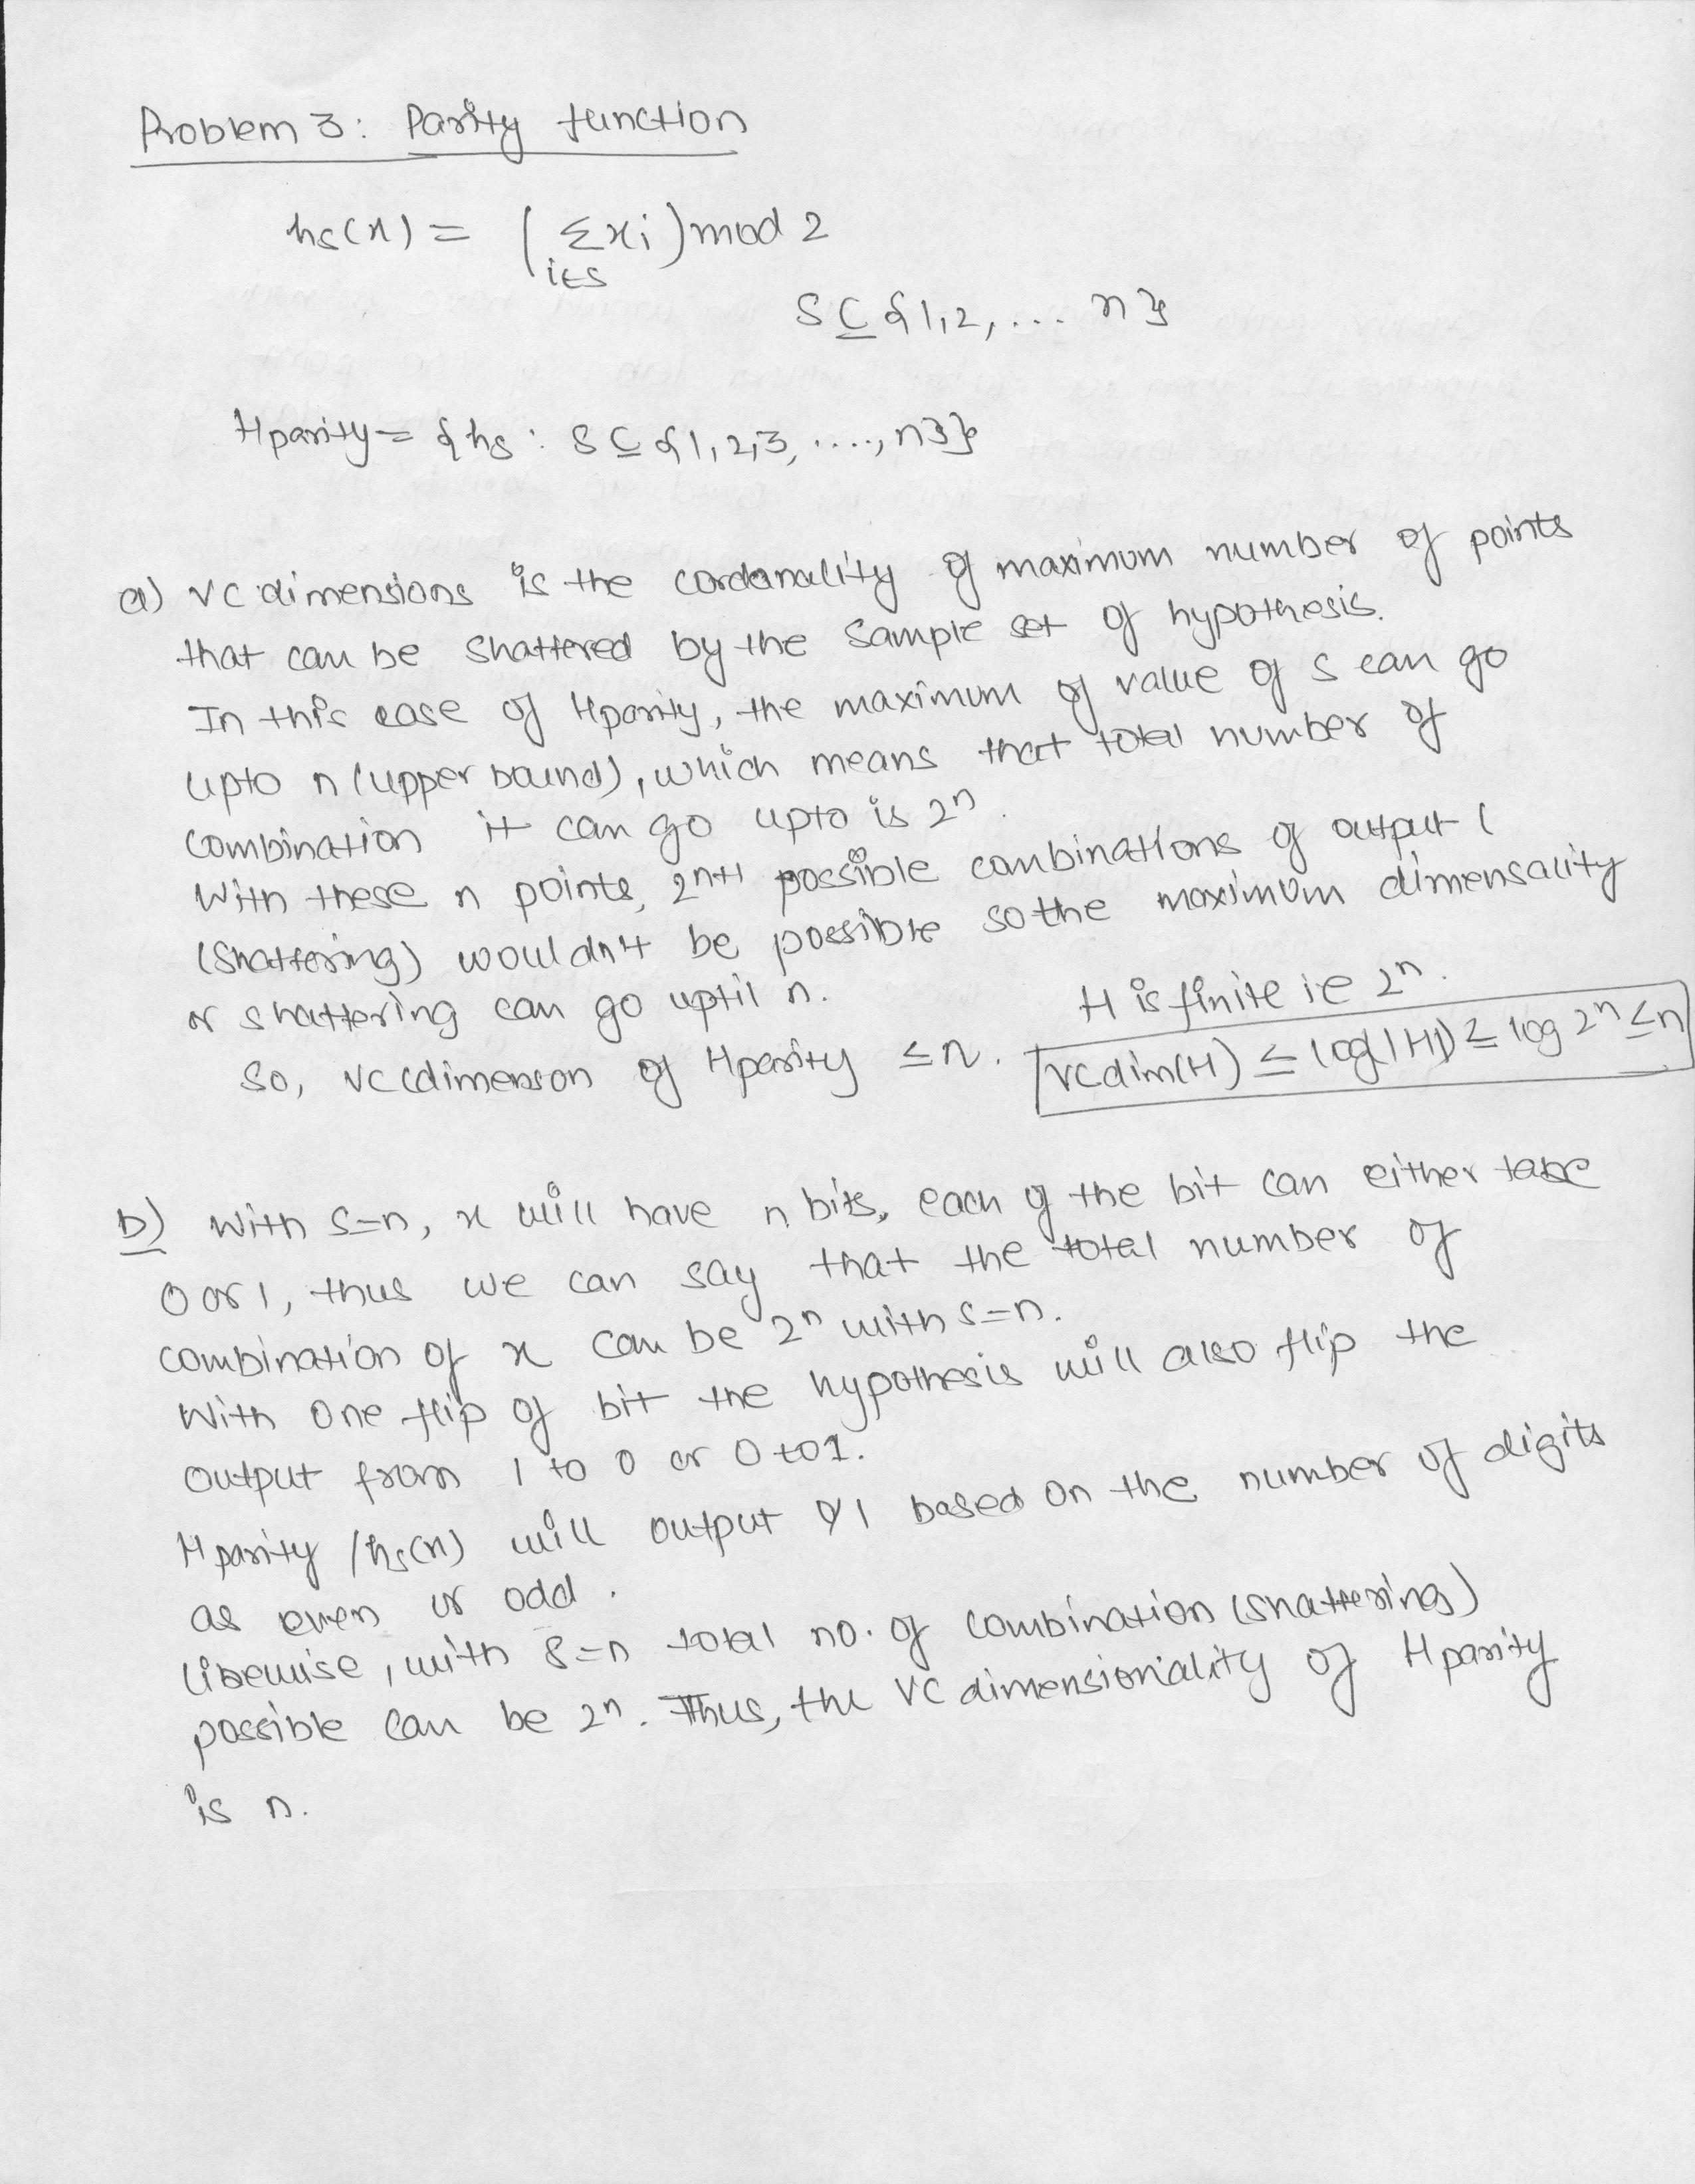 Problem 3: Parity function
hs(x) = (Σxi) mod 2
i∈S
S ⊆ {1,2,... n}
Hparity = {hs : S ⊆ {1,2,3,....,n}}
a) VC dimensions is the cordanality of maximum number of points
that can be shattered by the sample set of hypothesis.
In this case of Hparity, the maximum of value of S can go
upto n (upper bound), which means that total number of
combination it can go upto is 2ⁿ.
With these n points, 2ⁿ⁺¹ possible combinations of output (
(shattering) wouldn't be possible so the maximum dimensality
or shattering can go uptil n.
H is finite ie 2ⁿ.
So, VC(dimenson of Hparity ≤ n.
VCdim(H) ≤ log(|H|) ≤ log 2ⁿ ≤ n
b) With S=n, x will have n bits, each of the bit can either take
0 or 1, thus we can say that the total number of
combination of x can be 2ⁿ with S=n.
With one flip of bit the hypothesis will also flip the
output from 1 to 0 or 0 to 1.
Hparity /hs(x) will output 0/1 based on the number of digits
as even or odd.
Likewise, with S=n total no. of combination (shattering)
possible can be 2ⁿ. Thus, the VC dimensionality of Hparity
is n.